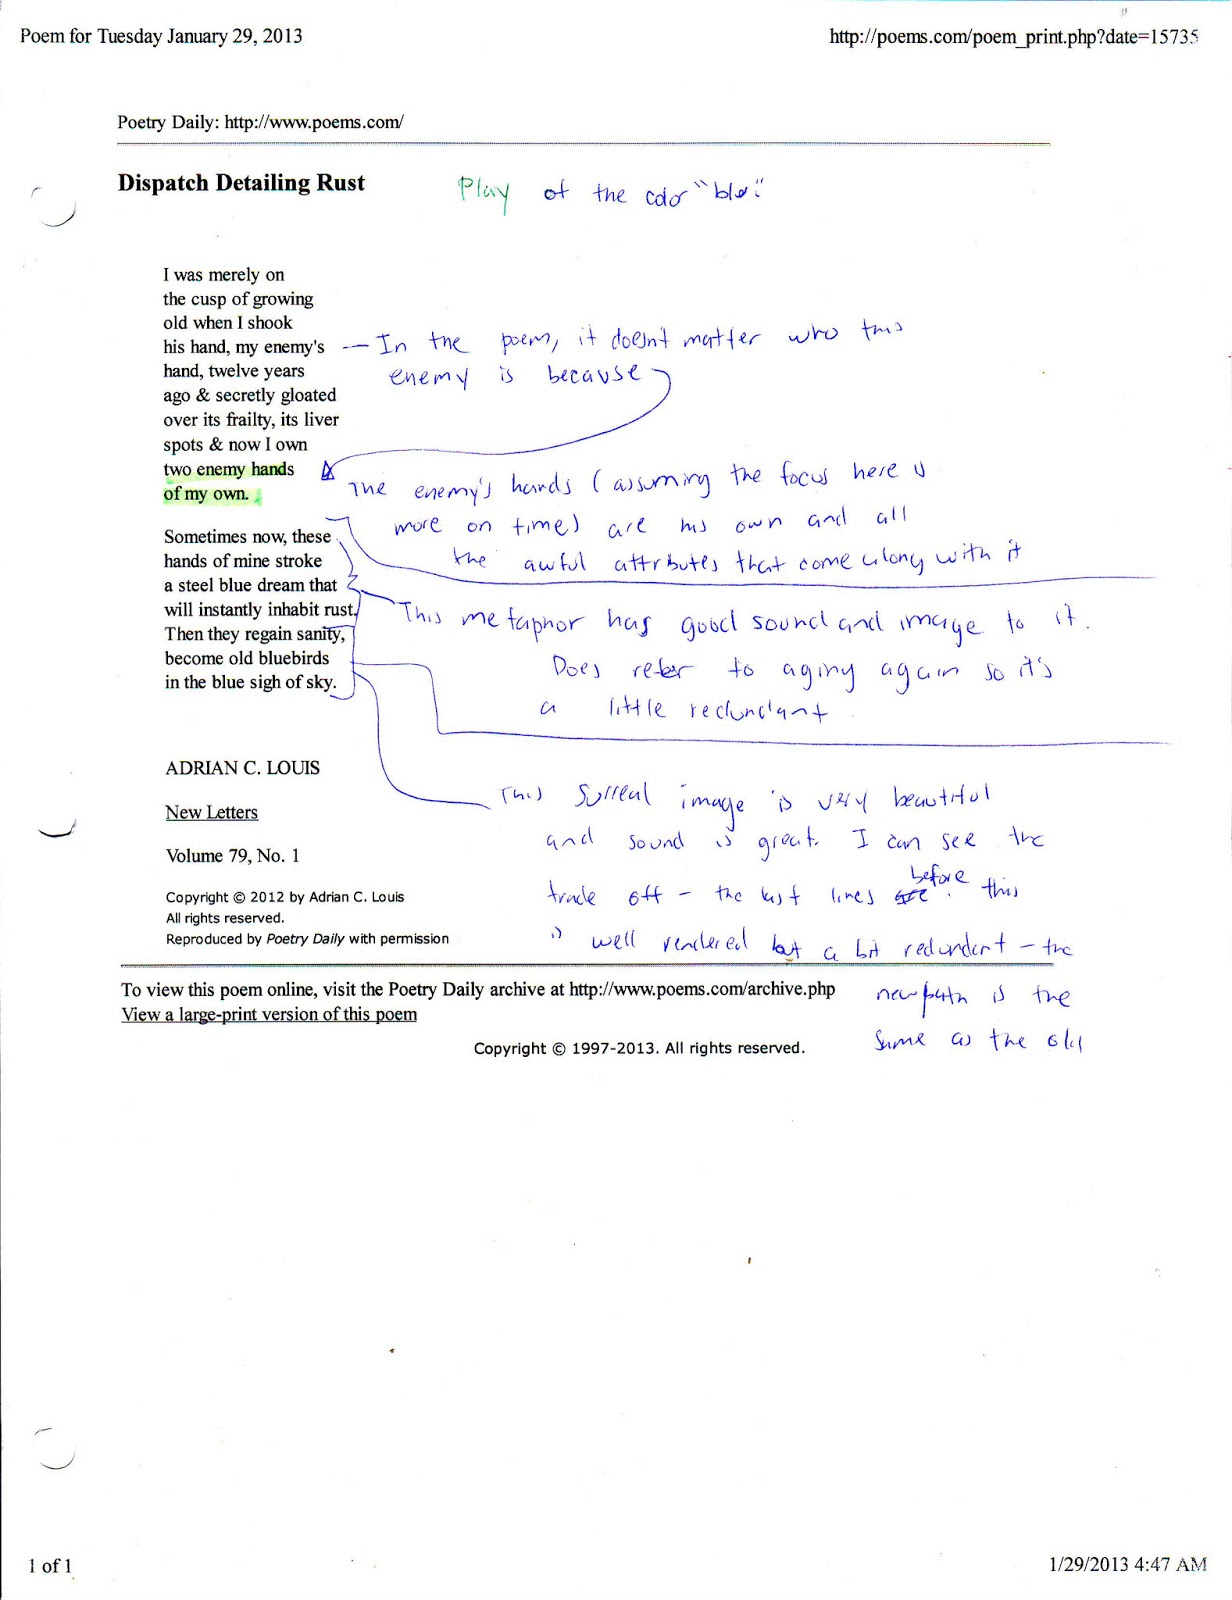 Poem for Tuesday January 29, 2013
http://poems.com/poem_print.php?date=15735
Poetry Daily: http://www.poems.com/
Dispatch Detailing Rust
Play of the color "blue."
I was merely on
the cusp of growing
old when I shook
his hand, my enemy's
hand, twelve years
ago & secretly gloated
over its frailty, its liver
spots & now I own
two enemy hands
of my own.
— In the poem, it doesn't matter who this
enemy is because
The enemy's hands (assuming the focus here is
more on time) are his own and all
the awful attributes that come along with it
Sometimes now, these
hands of mine stroke
a steel blue dream that
will instantly inhabit rust.
Then they regain sanity,
become old bluebirds
in the blue sigh of sky.
This metaphor has good sound and image to it.
Does refer to aging again so it's
a little redundant
This surreal image is very beautiful
and sound is great. I can see the
trade off - the last lines before. this
is well rendered but a bit redundant - the
new path is the
same as the old
ADRIAN C. LOUIS
New Letters
Volume 79, No. 1
Copyright © 2012 by Adrian C. Louis
All rights reserved.
Reproduced by Poetry Daily with permission
To view this poem online, visit the Poetry Daily archive at http://www.poems.com/archive.php
View a large-print version of this poem
Copyright © 1997-2013. All rights reserved.
1 of 1
1/29/2013 4:47 AM